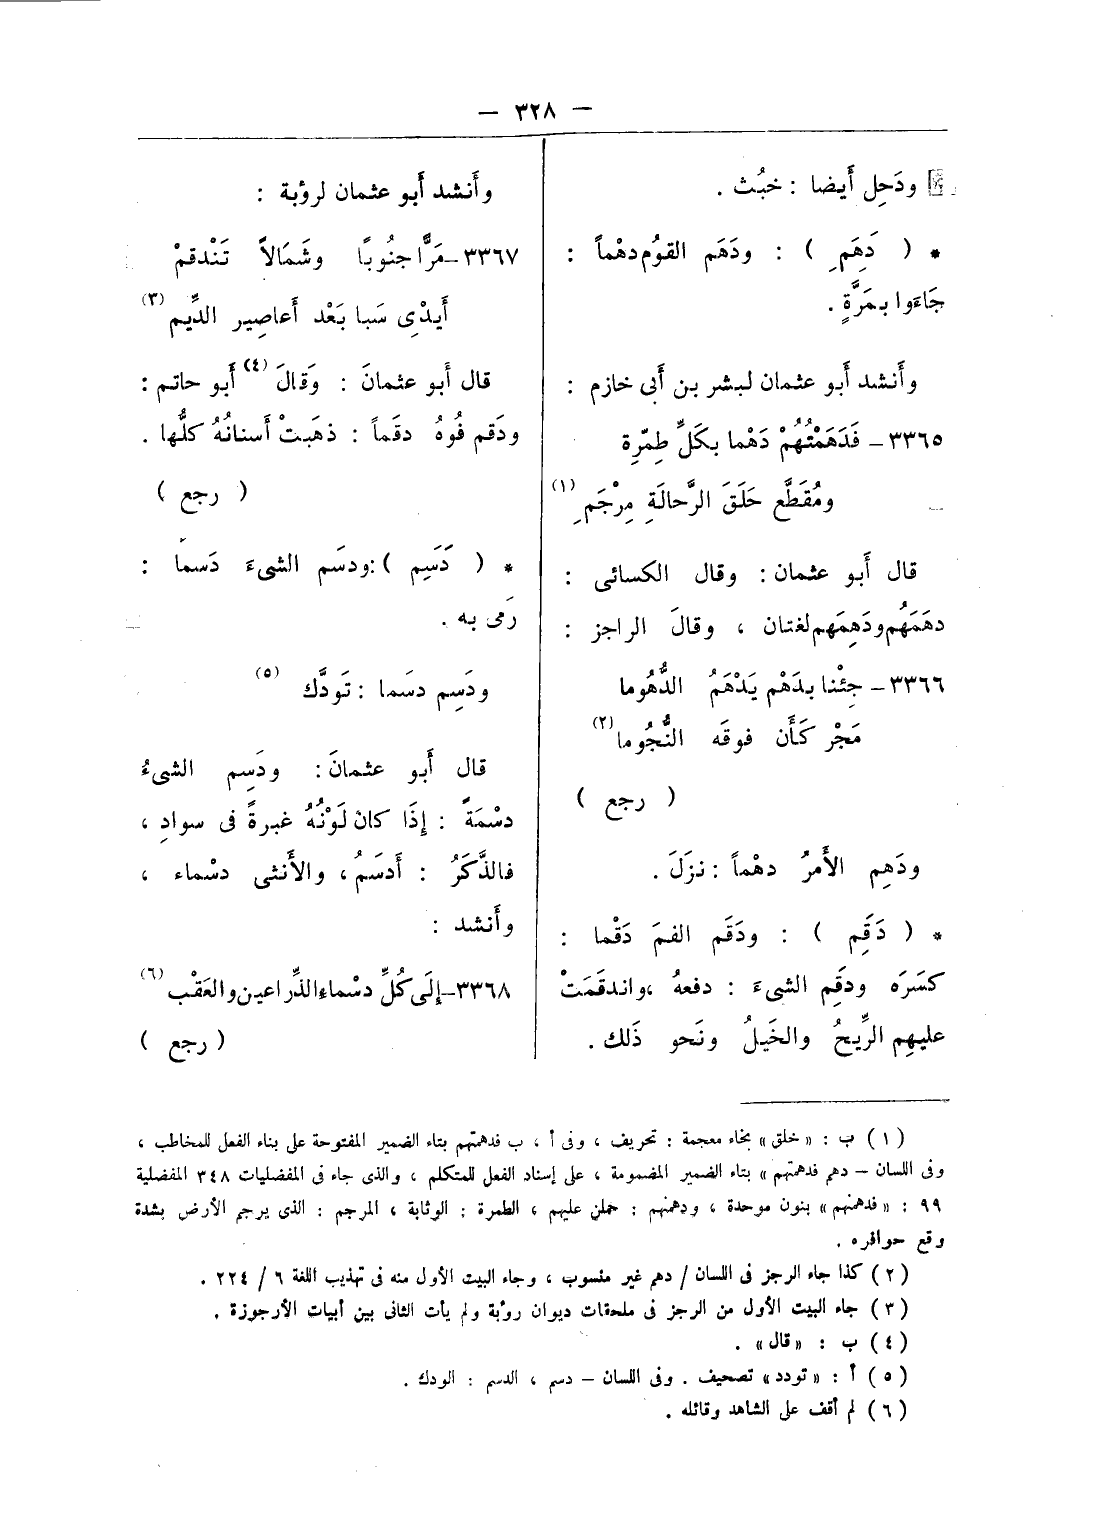 — ٣٢٨ —
ودَحِل أَيضا : خبُث .
* ( دَهَِم ) : ودَهَم القومُ دهْماً :
جَاءَوا بمَرَّةٍ .
وأَنشد أَبو عثمان لبشر بن أَبى خازم :
٣٣٦٥ – فَدَهَمْتُهُمْ دَهْما بكَلِّ طِمّرِة
ومُقَطَّع حَلَقَ الرَّحالَةِ مِرْجَمِ (١)
قال أَبو عثمان : وقال الكسائى :
دهَمَهُم ودَهِمَهم لغتان ، وقالَ الراجز :
٣٣٦٦ – جِئْنا بدَهْم يَدْهَمُ الدُّهُوما
مَجْر كَأَن فوقَه النُّجُوما (٢)
( رجع )
ودَهِم الأَمرُ دهْماً : نزَلَ .
* ( دَقَِم ) : ودَقَم الفمَ دَقْما :
كسَرَه ودقِم الشىءَ : دفعهُ ، واندقَمَتْ
عليهِم الرِّيحُ والخَيلُ ونَحو ذَلك .
وأَنشد أَبو عثمان لرؤبة :
٣٣٦٧ – مَرًّا جنُوبًا وشَمَالاً تَنْدقمْ
أَيدْى سَبا بَعْد أَعاصِير الدِّيم (٣)
قال أَبو عثمانَ : وَقالَ (٤) أَبو حاتم :
ودَقم فُوهُ دقَماً : ذهَبتْ أَسنانُهُ كلُّها .
( رجع )
* ( دَسَِم ) : ودسَم الشىءَ دَسما :
رَمى به .
ودَسِم دسَما : تَودَّك (٥)
قال أَبو عثمانَ : ودَسِم الشىءُ
دسْمَةً : إِذَا كانْ لَوْنُهُ غبرةً فى سوادِ ،
فالذَّكَرُ : أَدسَمُ ، والأُنثى دسْماء ،
وأَنشد :
٣٣٦٨ – إِلَى كُلِّ دسْماءِ الذِّراعين والعَقْب (٦)
( رجع )
(١) ب : « خلق » بخاء معجمة : تحريف ، وفى أ ، ب فدهمتهم بتاء الضمير المفتوحة على بناء الفعل للمخاطب ،
وفى اللسان – دهم فدهمتهم » بتاء الضمير المضمومة ، على إسناد الفعل للمتكلم ، والذى جاء فى المفضليات ٣٤٨ المفضلية
٩٩ : « فدهمنهم » بنون موحدة ، ودهمنهم : حملن عليهم ، الطمرة : الوثابة ، المرجم : الذى يرجم الأرض بشدة
وقع حوافره .
(٢) كذا جاء الرجز فى اللسان / دهم غير منسوب ، وجاء البيت الأول منه فى تهذيب اللغة ٦ / ٢٢٤ .
(٣) جاء البيت الأول من الرجز فى ملحقات ديوان رؤبة ولم يأت الثانى بين أبيات الأرجوزة .
(٤) ب : « قال » .
(٥) أ : « تودد » تصحيف . وفى اللسان – دسم ، الدسم : الودك .
(٦) لم أقف على الشاهد وقائله .